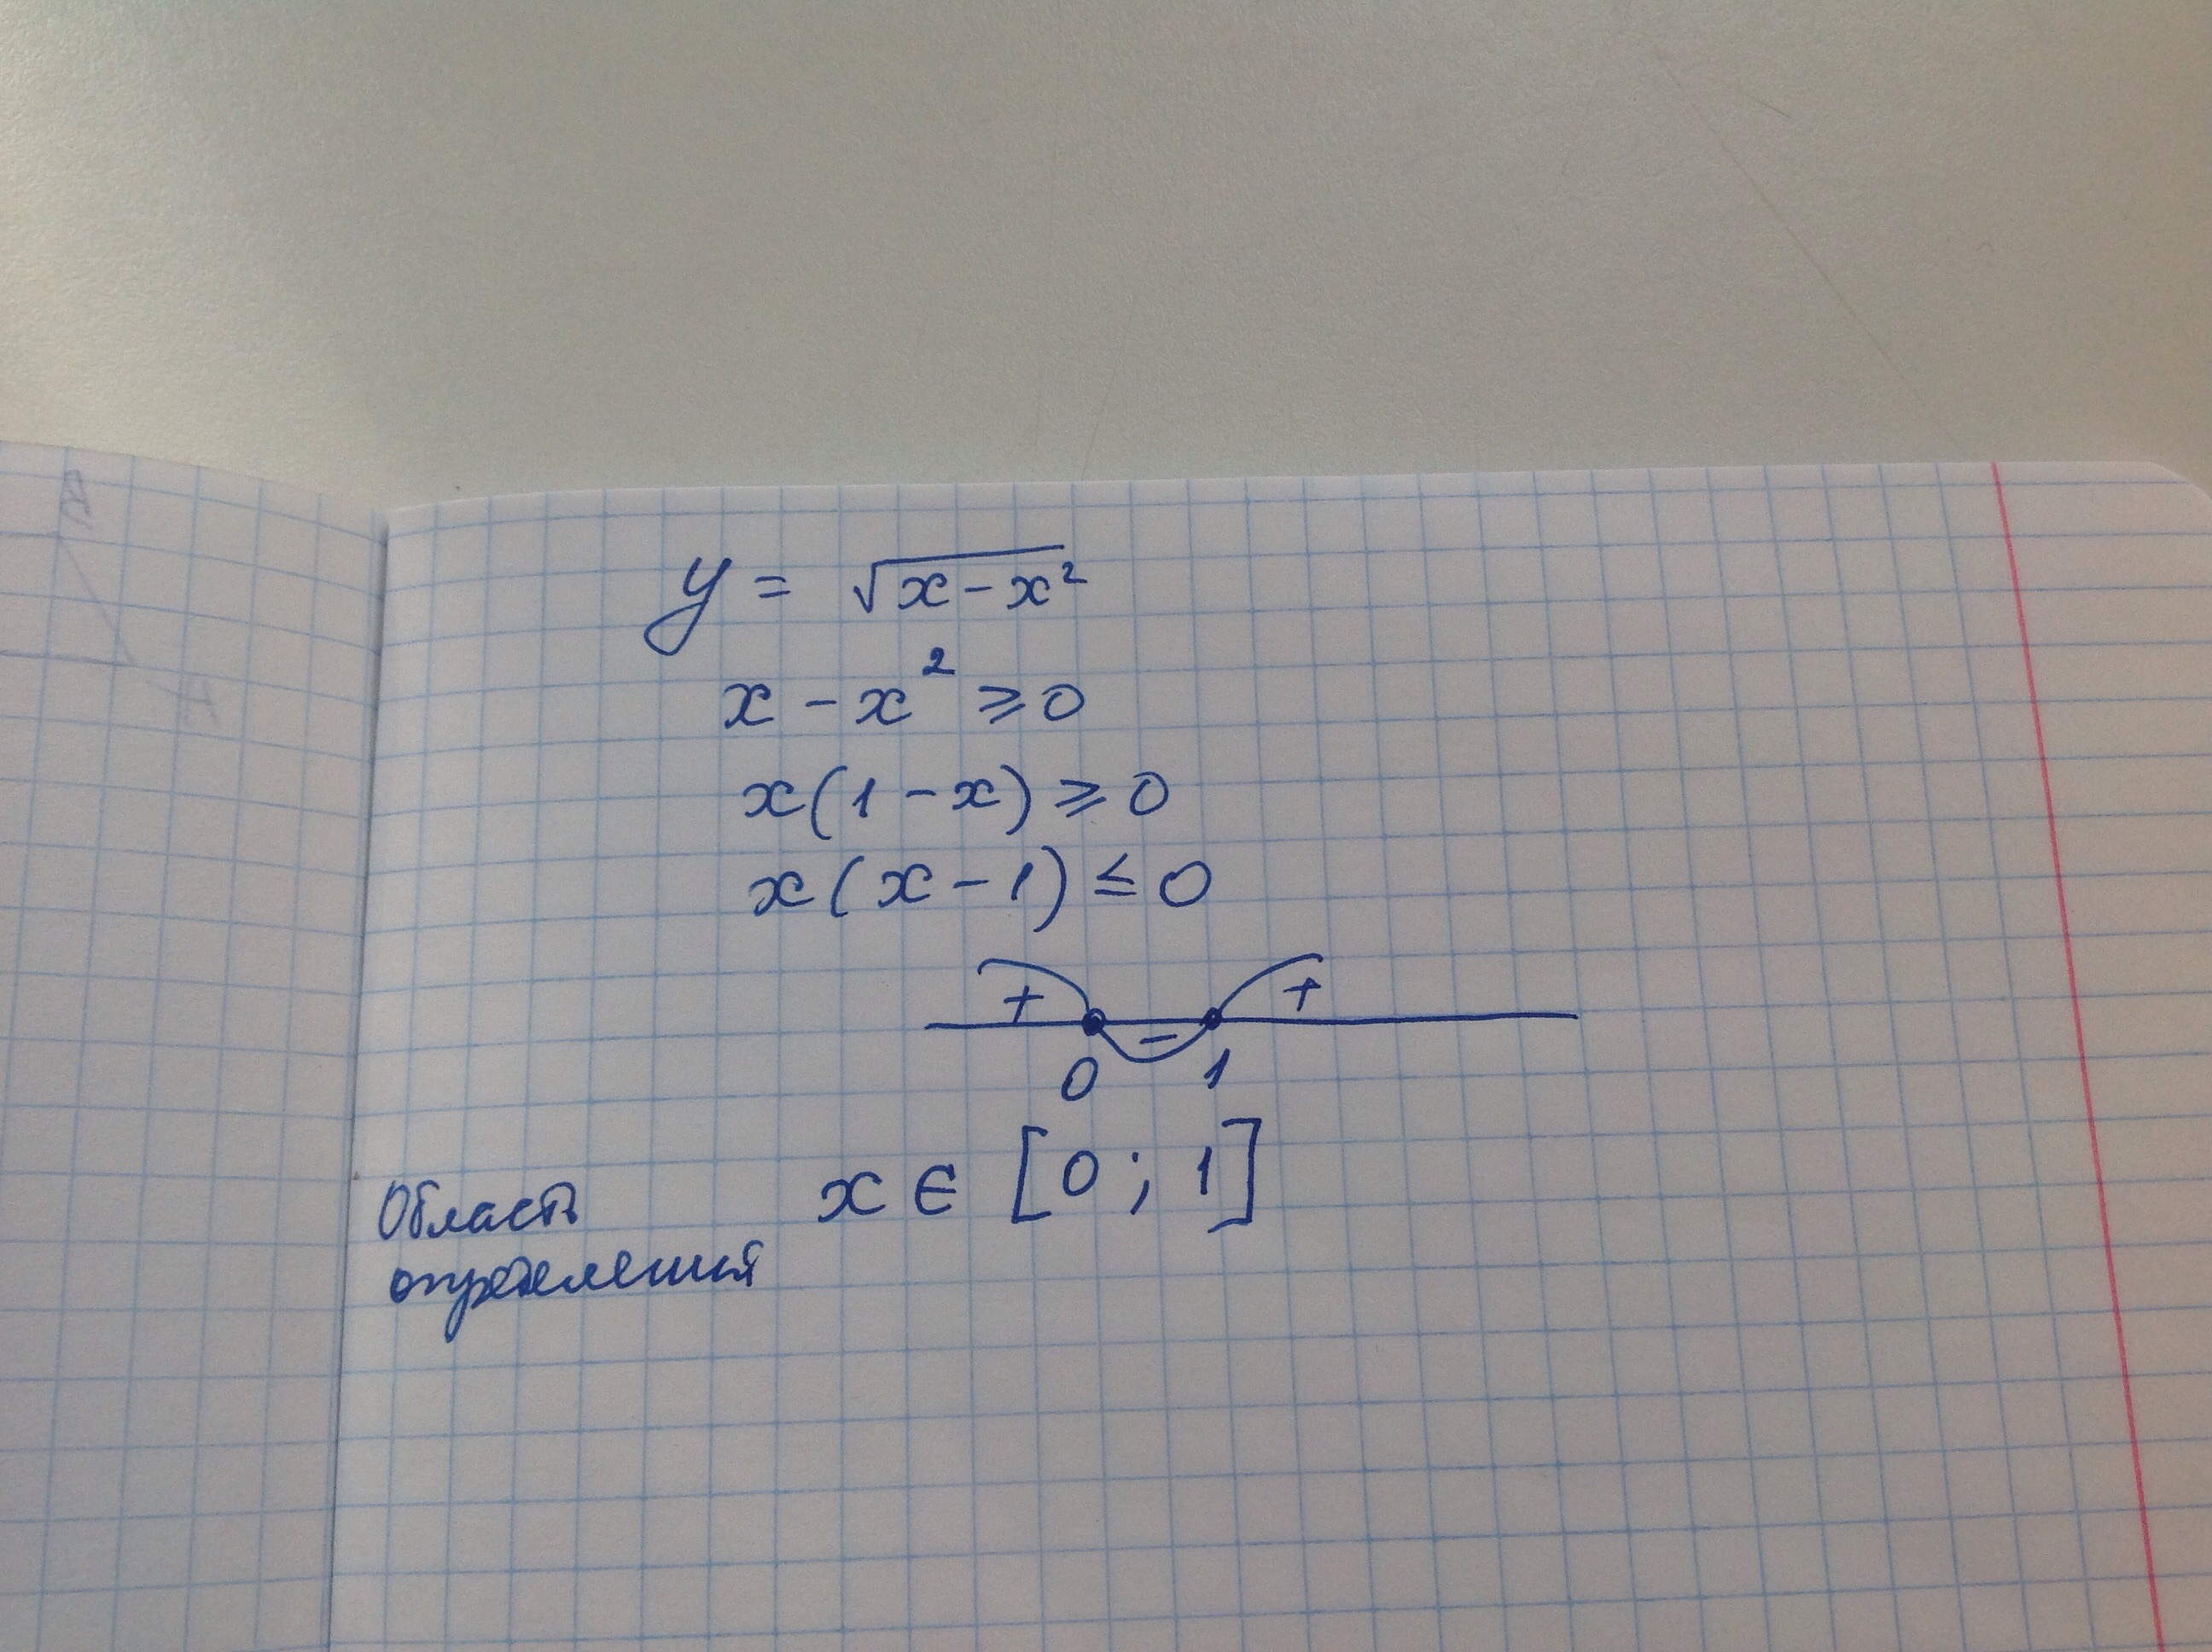 y = √x - x²
x - x² ⩾ 0
x(1 - x) ⩾ 0
x(x - 1) ≤ 0
+ - +
0 1
Область x ∈ [0; 1]
определения